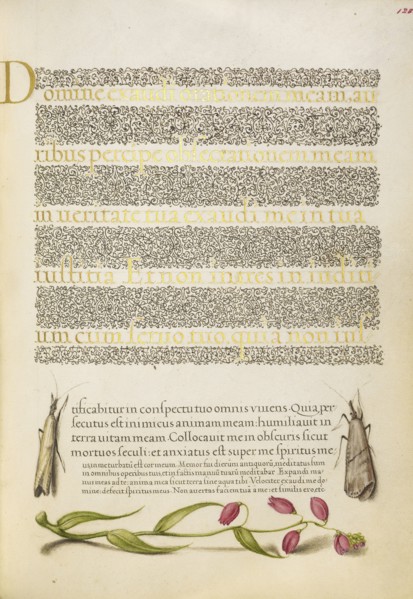 Domine exaudi orationem meam, au
ribus percipe obsecrationem meam
in ueritate tua exaudi me in tua
iustitia. Et non intres in iuditi
um cum seruo tuo, quia non ius
tificabitur in conspectu tuo omnis viuens. Quia, per
secutus est inimicus animam meam: humiliauit in
terra uitam meam. Collocauit me in obscuris sicut
mortuos seculi: et anxiatus est super me spiritus me
us, in me turbatū est cor meum. Memor fui dierum antiquorū, meditatus sum
in omnibus operibus tuis, et in factis manuū tuarū meditabar. Expandi ma
nus meas ad te: anima mea sicut terra sine aqua tibi. Velociter exaudi me do
mine: defecit spiritus meus. Non auertas faciem tuā a me: et similis ero